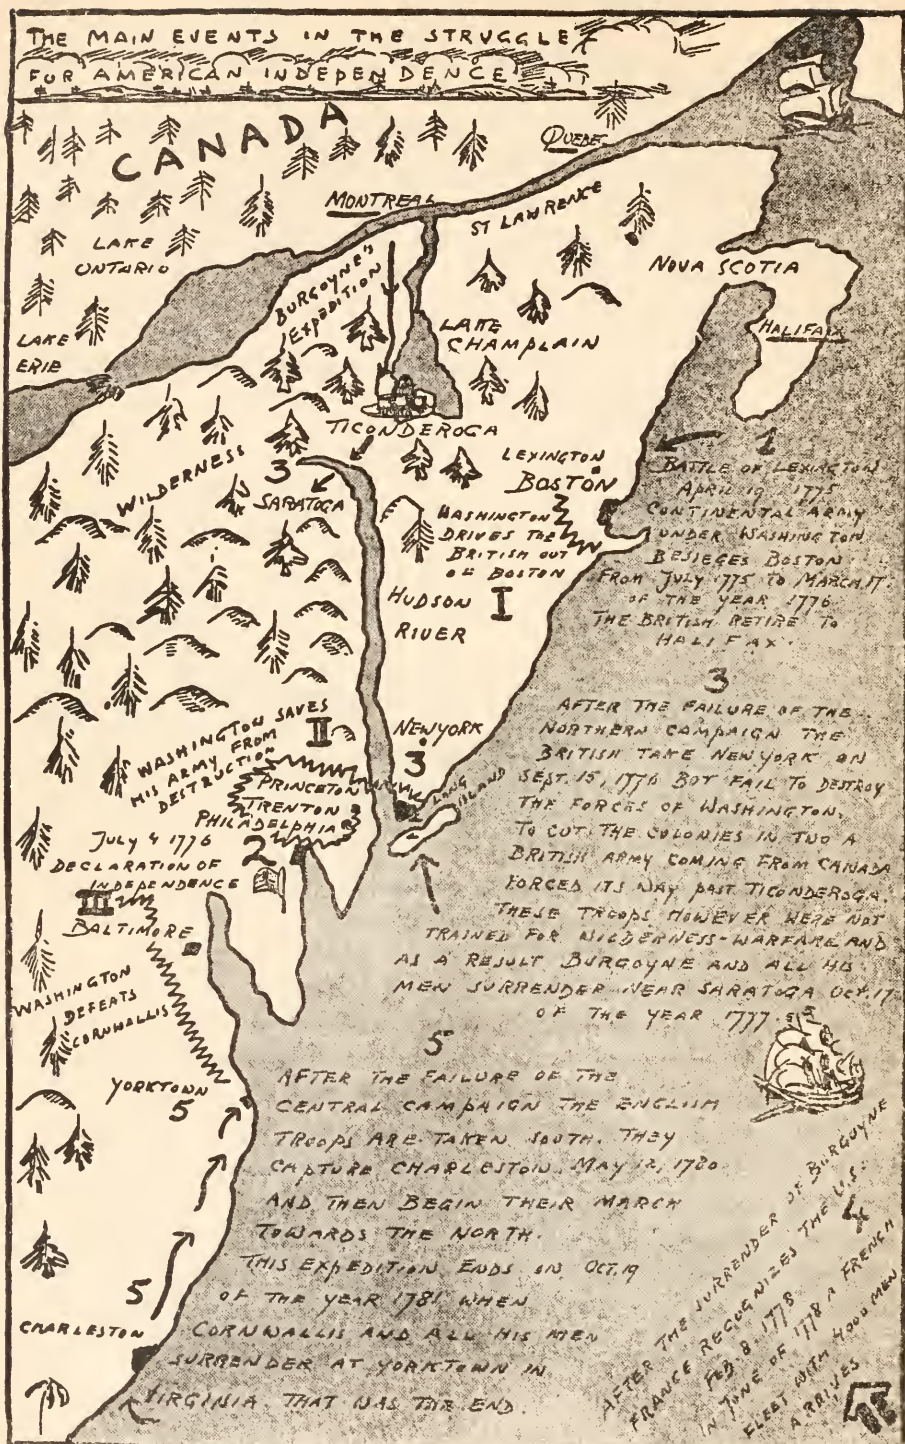 THE MAIN EVENTS IN THE STRUGGLE
FOR AMERICAN INDEPENDENCE
CANADA
QUEBEC
MONTREAL
ST LAWRENCE
LAKE
ONTARIO
NOVA SCOTIA
BURGOYNE'S
EXPEDITION
HALIFAX
LAKE
ERIE
LAKE
CHAMPLAIN
TICONDEROGA
WILDERNESS
3
SARATOGA
LEXINGTON
BOSTON
WASHINGTON
DRIVES THE
BRITISH OUT
OF BOSTON
I
HUDSON
RIVER
1
BATTLE OF LEXINGTON
APRIL 19 1775
CONTINENTAL ARMY
UNDER WASHINGTON
BESIEGES BOSTON
FROM JULY 1775 TO MARCH 17.
OF THE YEAR 1776
THE BRITISH RETIRE TO
HALIFAX.
WASHINGTON SAVES
HIS ARMY FROM
DESTRUCTION
II
NEW YORK
3
LONG
ISLAND
PRINCETON
TRENTON
PHILADELPHIA
2
JULY 4 1776
DECLARATION OF
INDEPENDENCE
3
AFTER THE FAILURE OF THE
NORTHERN CAMPAIGN THE
BRITISH TAKE NEW YORK ON
SEPT. 15, 1776 BOT FAIL TO DESTROY
THE FORCES OF WASHINGTON.
TO CUT THE COLONIES IN TWO A
BRITISH ARMY COMING FROM CANADA
FORCED ITS WAY PAST TICONDEROGA.
THESE TROOPS HOWEVER WERE NOT
TRAINED FOR WILDERNESS-WARFARE AND
AS A RESULT BURGOYNE AND ALL HIS
MEN SURRENDER NEAR SARATOGA OCT. 17
OF THE YEAR 1777.
III
BALTIMORE
WASHINGTON
DEFEATS
CORNWALLIS
YORKTOWN
5
5
CHARLESTON
5
AFTER THE FAILURE OF THE
CENTRAL CAMPAIGN THE ENGLISH
TROOPS ARE TAKEN SOUTH. THEY
CAPTURE CHARLESTON, MAY 12, 1780
AND THEN BEGIN THEIR MARCH
TOWARDS THE NORTH.
THIS EXPEDITION ENDS ON OCT. 19
OF THE YEAR 1781 WHEN
CORNWALLIS AND ALL HIS MEN
SURRENDER AT YORKTOWN IN
VIRGINIA. THAT WAS THE END.
4
AFTER THE SURRENDER OF BURGOYNE
FRANCE RECOGNIZES THE U.S.
FEB 8. 1778
IN JUNE OF 1778 A FRENCH
FLEET WITH 4000 MEN
ARRIVES